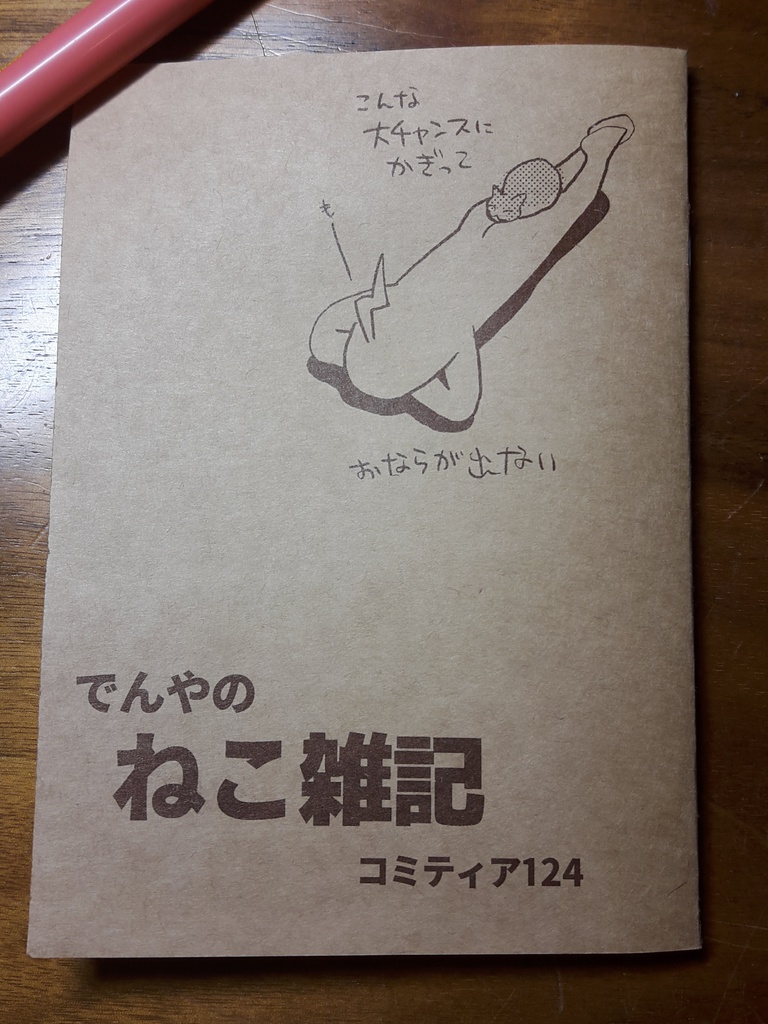 こんな
大チャンスに
かぎって
も
おならが出ない
でんやの
ねこ雑記
コミティア124